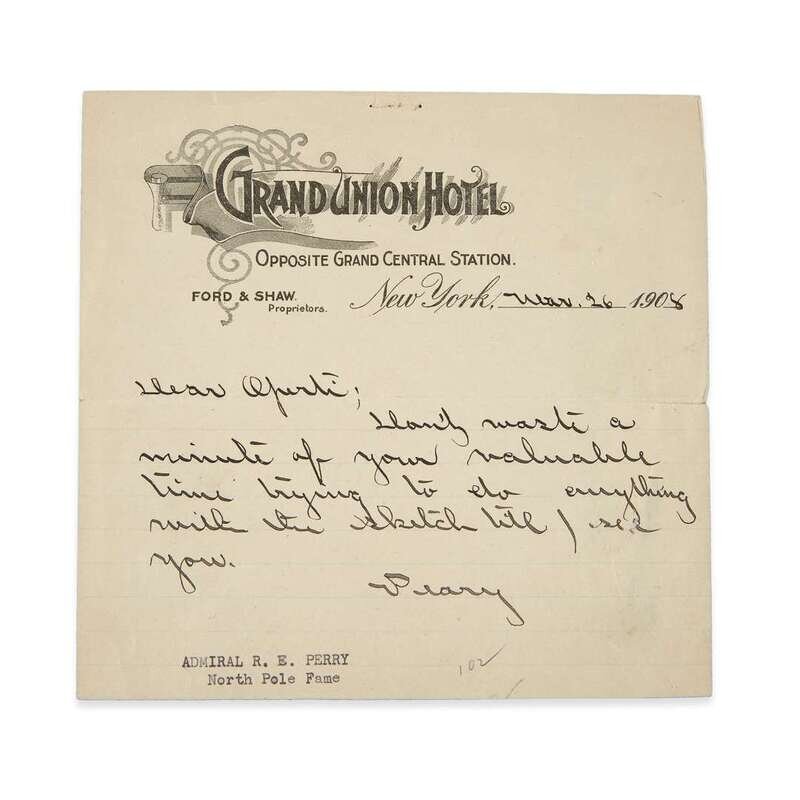 GRAND UNION HOTEL
OPPOSITE GRAND CENTRAL STATION.
FORD & SHAW.
Proprietors.
New York, Mar. 26 1908
Dear Operti;
Don't waste a
minute of your valuable
time trying to do anything
with the sketch till I see
you.
Peary
ADMIRAL R. E. PERRY
North Pole Fame
102